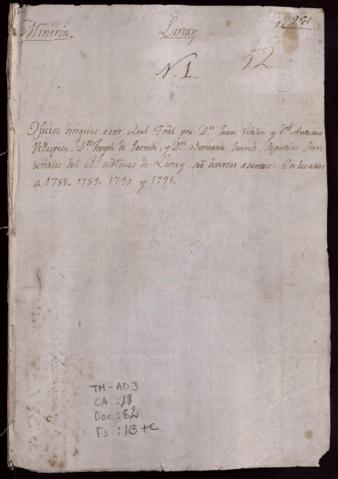 Mineria. Lircay
N. 1. 52
Oficios dirigidos a este Real Tral por Dn Juan y Dn Antonio
Villaspesa, Dn Joseph de y Dn Bernardo Diputados Terri
toriales del Rl de Minas de Lircay sre diversos asuntos. En los años
de 1788. 1789. 1790 y 1791.
TM-AD3
CA : 18
Doc : 82
Fs : 13 + C